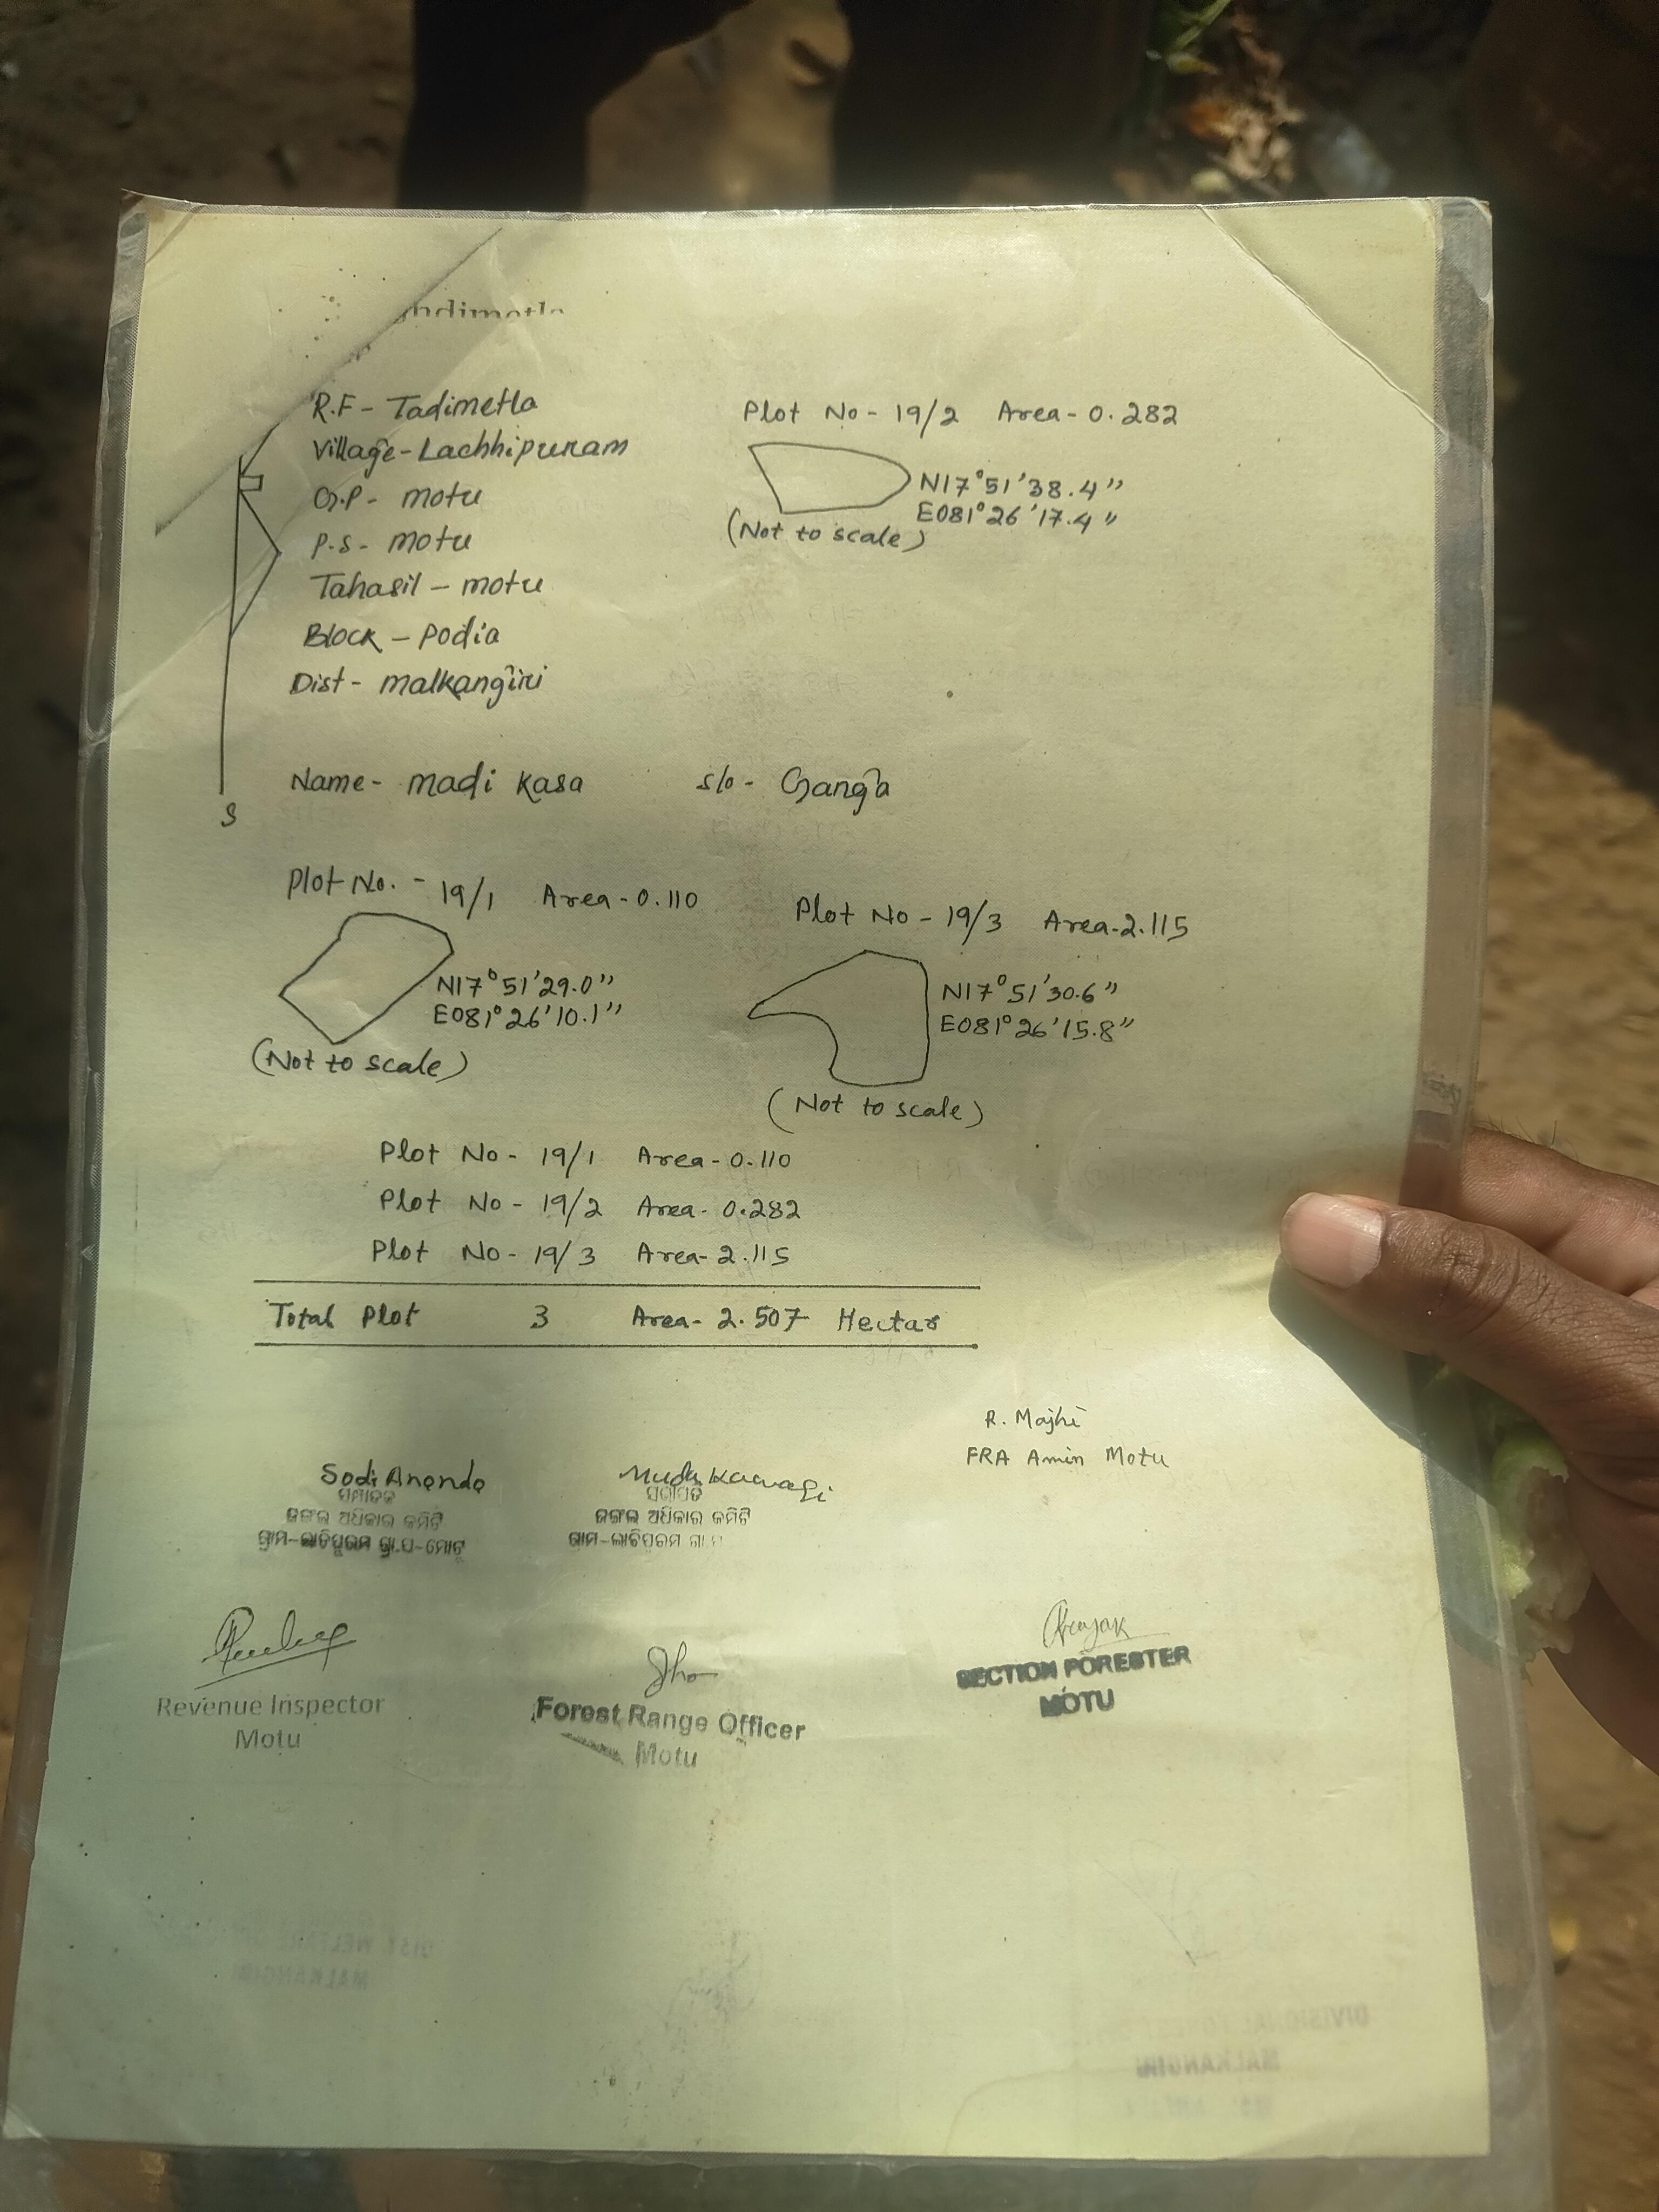 R.F - Tadimetla
Village - Lachhipuram
G.P - motu
P.S - motu
Tahasil - motu
Block - Podia
Dist - malkangiri
Plot No - 19/2 Area - 0.282
N17°51'38.4"
E081°26'17.4"
(Not to scale)
S
Name - madi Kasa S/o - Ganga
Plot No. - 19/1 Area - 0.110
N17°51'29.0"
E081°26'10.1"
(Not to scale)
Plot No - 19/3 Area - 2.115
N17°51'30.6"
E081°26'15.8"
(Not to scale)
Plot No - 19/1 Area - 0.110
Plot No - 19/2 Area - 0.282
Plot No - 19/3 Area - 2.115
Total Plot 3 Area - 2.507 Hectar
R. Majhi
FRA Amin Motu
Sodi Anondo
ସମ୍ପାଦକ
ଜଙ୍ଗଲ ଅଧିକାର କମିଟି
ଗ୍ରାମ-ଲାଚିପୁରମ ଗ୍ରା.ପ-ମୋଟୁ
ସଭାପତି
ଜଙ୍ଗଲ ଅଧିକାର କମିଟି
ଗ୍ରାମ-ଲାଚିପୁରମ
Revenue Inspector
Motu
Forest Range Officer
Motu
SECTION FORESTER
MOTU
MALKANGIRI
DIVISIONAL FOREST
MALKANGIRI